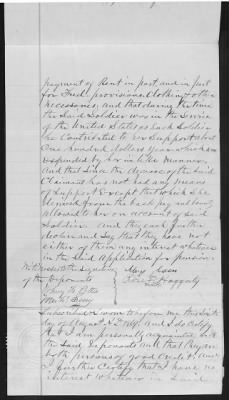 payment of Rent in part and in part
for Food, provisions, Clothing & other
necessaries, and that during the time
the said Soldier was in the Service
of the United States as such Soldier
he Contributed to her Support about
One hundred dollars
expended by her in like Manner,
And that Since the decease of the said
Claimant has not had any means
of Support Except that which She
derived from the back pay
allowed to her on account of said
Soldier. And they each further
declare and Say that they have not
either of them any interest whatever
in the Said Application for pension.
Witnesses to the signing
of the Deponents
Subscribed & sworn before me this
day of August A.D. and I do Certify
that I am personally acquainted with
the Said Deponents and that they are
both persons of good Credit and
I further Certify that I have no
interest whatever in said